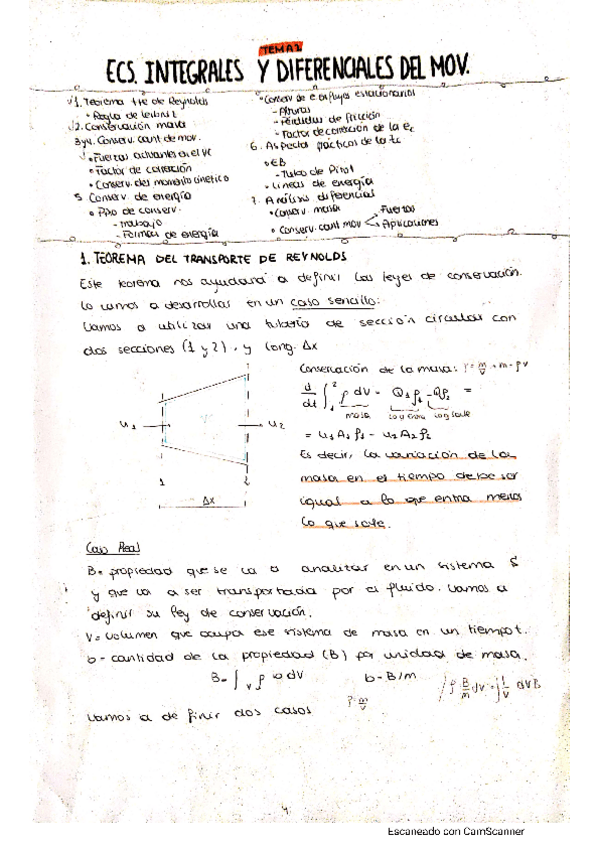 TEMA 2
ECS. INTEGRALES Y DIFERENCIALES DEL MOV.
1. Teorema tte de Reynolds
• Regla de Leibniz
2. Conservación masa
3 y 4. Conserv. cant de mov.
• Fuerzas actuantes en el VC
• Factor de corrección
• Conserv. del momento cinético
5. Conserv. de energía
• Ppio de conserv.
- trabajo
- Formas de energía
• Conserv de e en flujos estacionarios
- Alturas
- Pérdidas de fricción
- Factor de corrección de la ec
6. Aspectos prácticos de la
• EB
- Tubo de Pitot
• Líneas de energía
7. Análisis diferencial
• Conserv. masa
• Conserv. cant mov
Fuerzas
Aplicaciones
1. TEOREMA DEL TRANSPORTE DE REYNOLDS
Este teorema nos ayudará a definir las leyes de conservación.
Lo vamos a desarrollar en un caso sencillo:
Vamos a utilizar una tubería de sección circular con
dos secciones (1 y 2), y long. Δx
Conservación de la masa: ρ = m/V → m = ρV
d/dt ∫₁² ρ dV = Q₁ρ₁ - Qρ₂ =
masa lo q entra lo q sale
= u₁A₁ρ₁ - u₂A₂ρ₂
Es decir, la variación de la
masa en el tiempo debe ser
igual a lo que entra menos
lo que sale.
u₁
u₂
1
2
Δx
Caso Real
B = propiedad que se va a analizar en un sistema S
y que va a ser transportada por el fluido. Vamos a
definir su ley de conservación.
V = volumen que ocupa ese sistema de masa en un tiempo t.
b = cantidad de la propiedad (B) por unidad de masa.
B = ∫v ρ b dV b = B/m
ρ = m/V
Vamos a definir dos casos
Escaneado con CamScanner